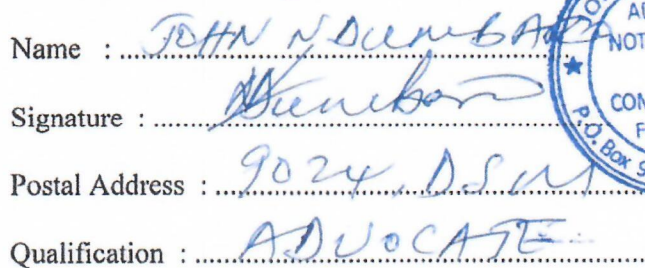 Name : JOHN NDUMBARO
Signature :
Postal Address : 9024, DSM
Qualification : ADVOCATE
NOT
CON
F
P.O. Box 9